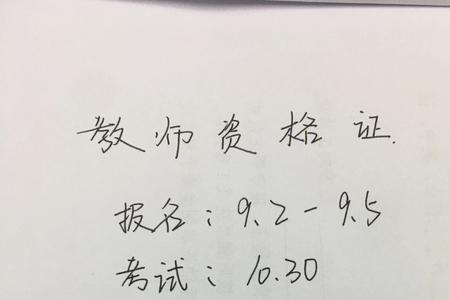 教师资格证.
报名：9.2-9.5
考试：10.30